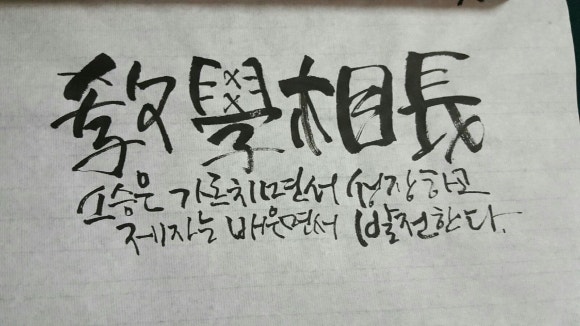 敎學相長
스승은 가르치면서 성장하고
제자는 배우면서 발전한다.